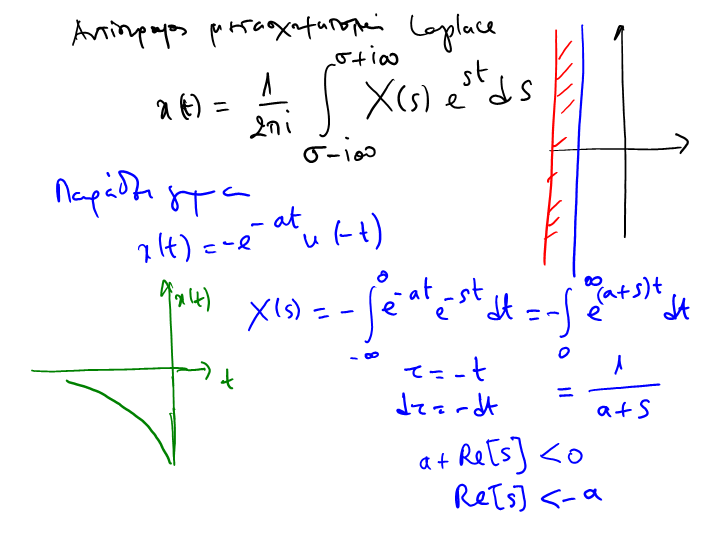 Αντίστροφος μετασχηματισμός Laplace
x(t) = \frac{1}{2πi} \int_{σ-i∞}^{σ+i∞} X(s) e^{st} ds
Παράδειγμα
x(t) = -e^{-at} u(-t)
x(t)
t
X(s) = -\int_{-∞}^{0} e^{-at} e^{-st} dt = -\int_{0}^{∞} e^{(a+s)t} dt
τ = -t
dτ = -dt
= \frac{1}{a+s}
a + Re[s] < 0
Re[s] < -a